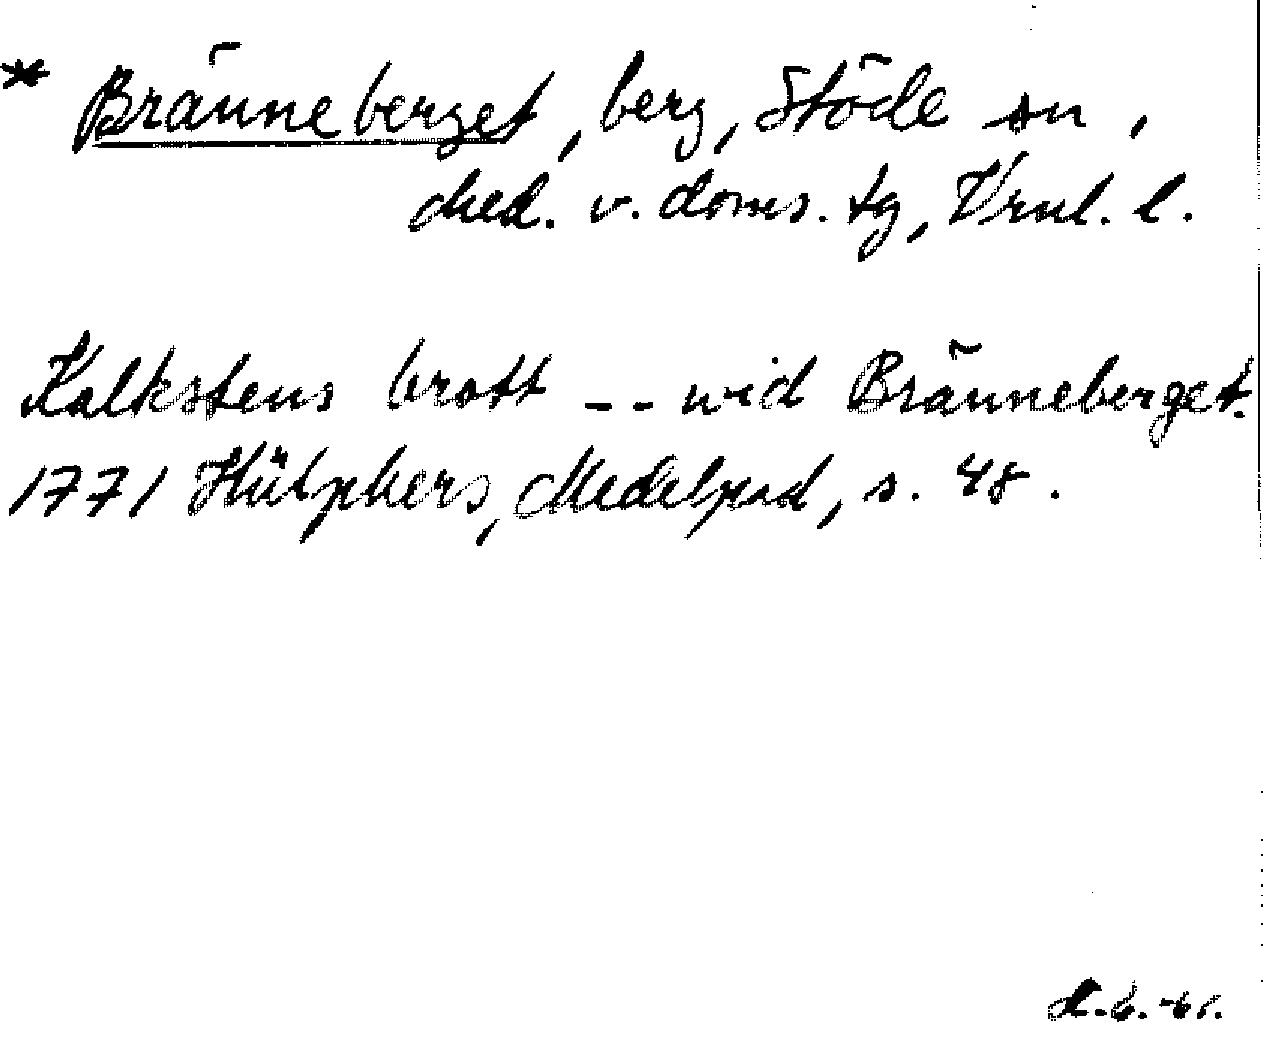 * Bränneberget, berg, Stöde sn,
Med. v. doms. tg, Vrnl. l.
Kalkstens brott -- wid Bränneberget.
1771 Hülphers, Medelpad, s. 48.